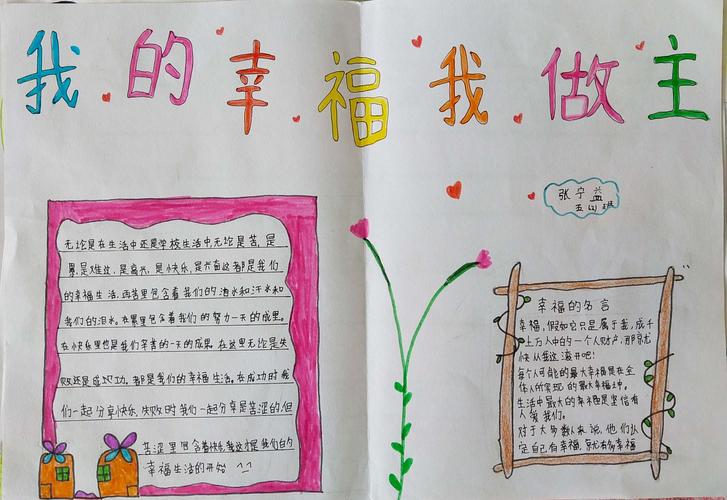 我的幸福我做主
张宁益
五(2)班
无论是在生活中还是学校生活中,无论是苦,是
累,是难过,是高兴,是快乐,是兴奋这都是我们
的幸福生活,再苦里包含着我们的酒水和汗水和
我们的泪水。在累里包含着我们的努力一天的成果。
在快乐里也是我们辛苦的一天的成果。在这里无论是失
败还是成功功,都是我们的幸福生活。在成功时我
们一起分享快乐,失败时我们一起分享是苦涩的,但
苦涩里包含着快乐,我这才是我们白的
幸福生活的开始 ^_^
幸福的名言
幸福,假如它只是属于我,成千
上万人中的一个人财产,那就
快从我这滚开吧!
每个人可能的最大幸福是在全
体人所实现的最大幸福之中。
生活中最大的幸福是坚信有
人爱我们。
对于大多数人来说,他们认
定自己有幸福,就有多幸福